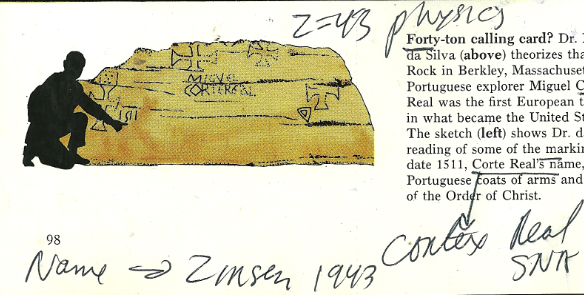 Z=43 physics
Forty-ton calling card? Dr.
da Silva (above) theorizes tha
Rock in Berkley, Massachuset
Portuguese explorer Miguel C
Real was the first European t
in what became the United St
The sketch (left) shows Dr. d
reading of some of the markin
date 1511, Corte Real's name,
Portuguese coats of arms and
of the Order of Christ.
MIGVEL
CORTEREAL
1511
98
Name → Zinsen 1943
Real